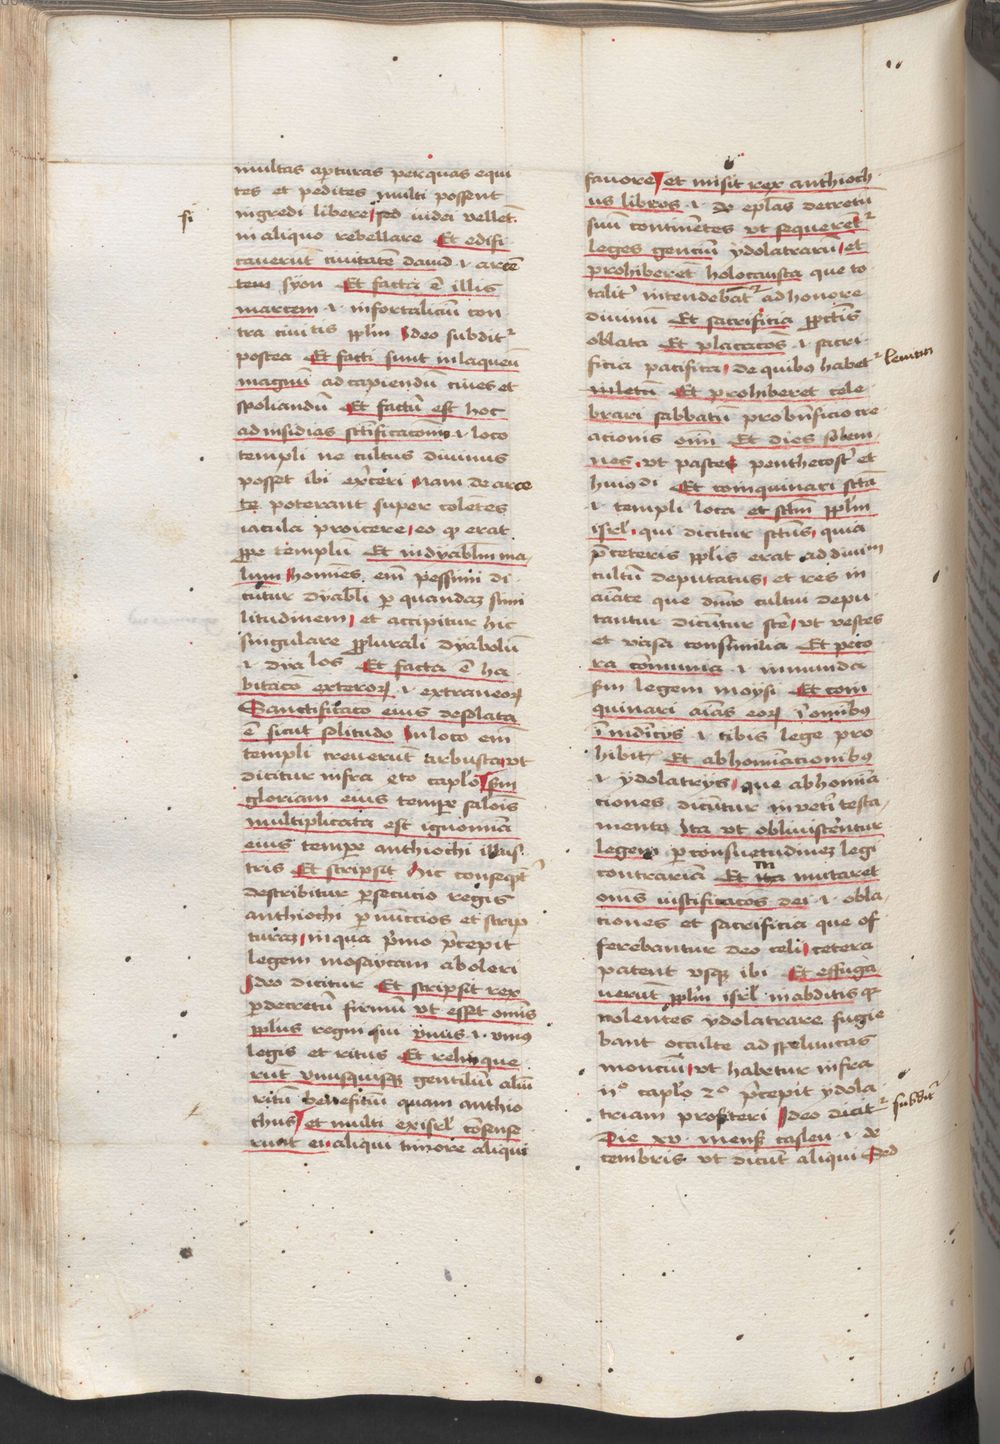 multas apturas per quas equi
tes et pedites multi possent
ingredi libere sed iudei vellet.
si
in aliquo rebellare Et edifi
cauerūt ciuitatē dauid .i. arcē
tem syon Et facta ē illis
in arcem .i. in fortaliciū con
tra ciuitis pplm Ideo subditr
postea Et facti sunt in laqueū
magnū ad capiendū ciues et
spoliandū Et factū est hoc
ad insidias sctīficacōnis .i. loco
templi ne cultus diuinus
posset ibi exerceri Nam de arce
te poterant super colētes
iacula proicere eo qȝ erat
ppe templū Et in dyablm ma
lum homīes eīm pessimi di
cūtur dyabli p quandaȝ simi
litudinem et accipitur hic
singulare p plurali dyabolū
.i. dyalos Et facta ē ha
bitacō exteroꝝ .i. extraneoꝝ
Sanctificatō eius desolata
ē sicut solitudo In loco eīm
templi creuerūt arbusta vt
dicitur infra 4to caplo Scdm
gloriam eius tempe salōis
multiplicata est ignominia
eius tempe anthiochi illus
tris Et scripsit hic conseqt
describitur psecucio regis
anthiochi p nuncios et scrip
turaȝ in qua pmo pcepit
legem mosaycam aboleri
Ideo dicitur Et scripsit rex
p decretū firmū vt esset omīs
pplus regni sui vnus .i. vnius
legis et ritus Et relinque
rūt vnusquisqȝ gentiliū alīm
ritū benefitiū quam anthio
chus et multi ex isrl cōsense
runt ei aliqui timore aliqui
favore et misit rex anthioch
us libros .i. eplas decretū
suū continētes vt sequerētr
leges genciū ydolatrarū et
prohiberēt holocausta que to
talitr intendebātr ad honorē
diuinū Et sacrificia p pctīs
oblata Et placacōs .i. sacri
ficia pacifica de quibȝ habetr leuitici
in letū Et prohiberēt cele
brari sabbatū pro bn̄ficio cre
acionis oīm Et dies solem
nes vt pasce penthecost et
huiȝdi Et coinquinari sctā
.i. templi loca et sctm pplm
isrl qui dicitur sctūs quia
p ceteris pplis erat ad diuinm
cultū deputatus et res in
aīate que diuīo cultui depu
tantur dicūtur scte vt vestes
et vasa consimilia Et peco
ra cōmunia .i. inmunda
scdm legem moysi Et coin
quinari aīas eoꝝ ī omībȝ
īmūdicijs .i. cibis lege pro
hibit Et abhomīacionibȝ
.i. ydolatrijs que abhomia
ciones dicūtur in veti testa
mento Ita vt obliuiscētur
legem p consuetudineȝ legi
contrariā Et ita mutarēt
omīs iustificacōs dei .i. obla
ciones et sacrificia que of
ferebantur deo celi cetera
patent vsqȝ ibi Et effuga
uerūt pplm isrl in abditis qȝ
nolentes ydolatrare fugie
bant occulte ad speluncas
monciū vt habetur infra
ijo caplo 2o pcepit ydola
triam profiteri Ideo dicitr subditr
Die xv mensȝ casleu .i. de
cembris vt dicūt aliqui Sed